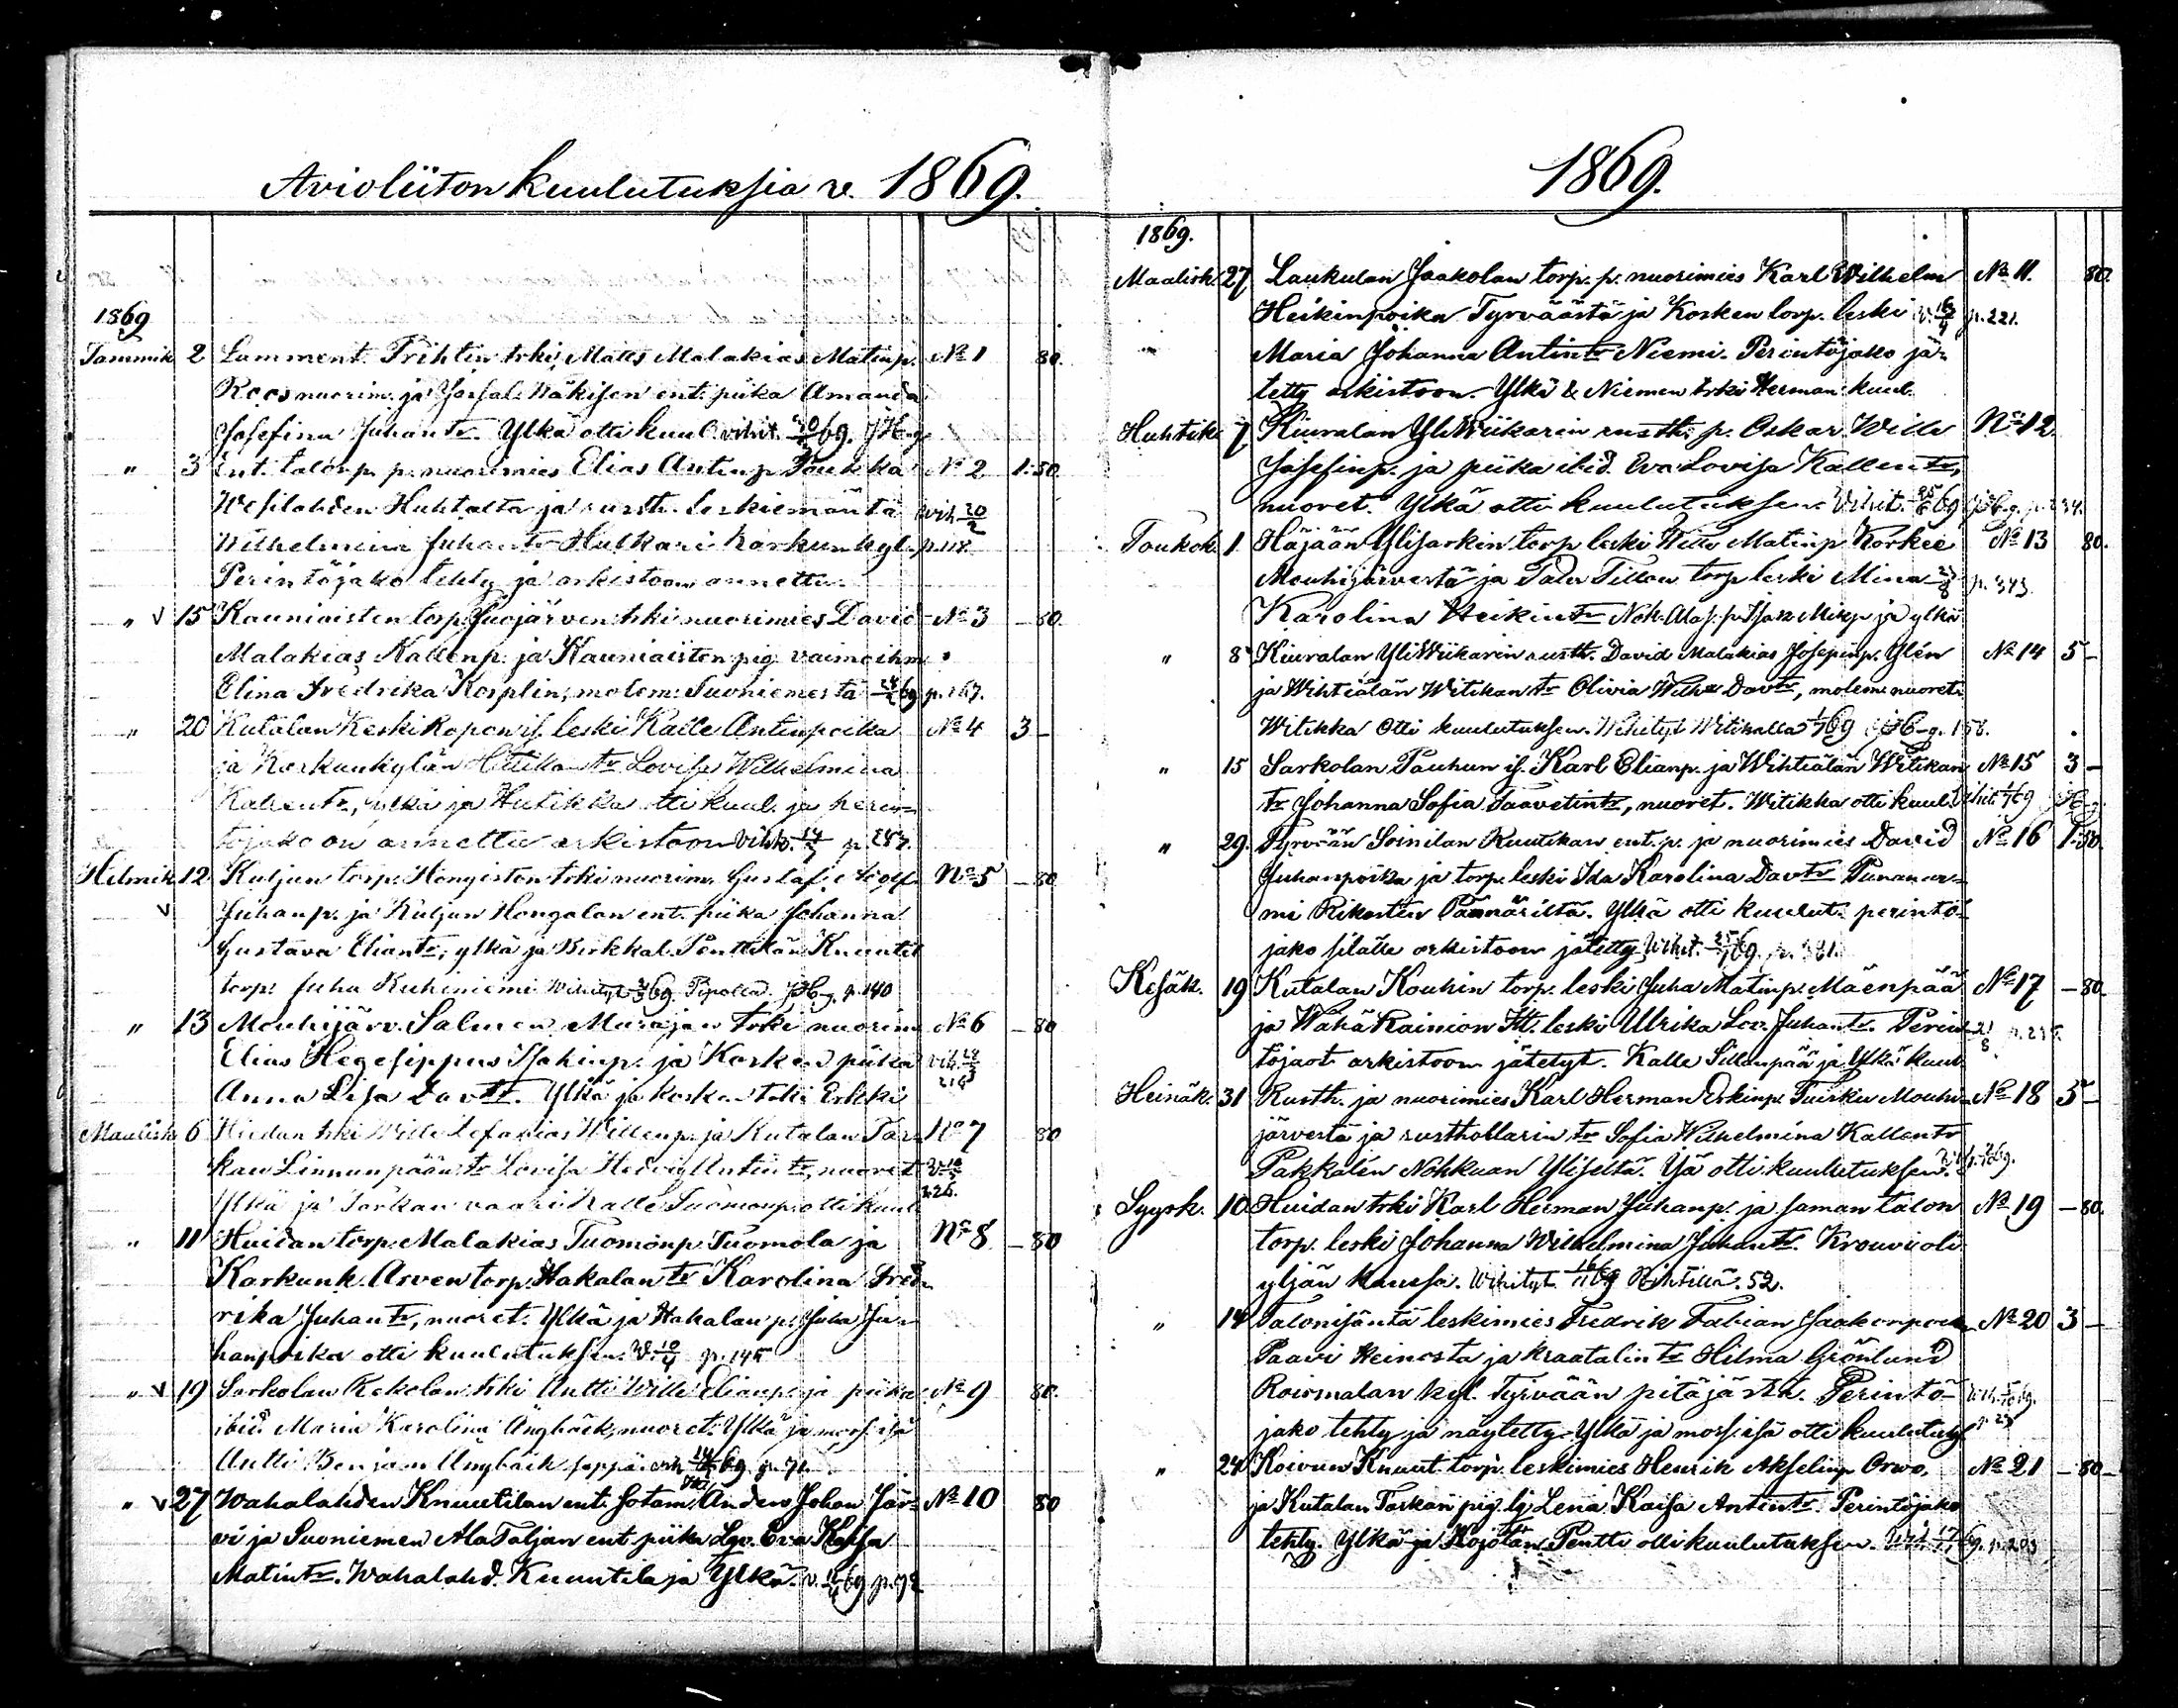 Avioliiton kuulutuksia v. 1869.
1869
Tammik 2 Lamment. Prihtin trki Matts Malakias Matinp. No 1 80.
Roos nuorim. ja Näkisen ent. piika Amanda
Josefina Juhantr. Ylkä otti kuul. vihit. 69.
" 3 Ent. talonp. p. nuorimies Elias Antinp. Toukka No 2 1:50.
Wesilahden Huhtalta ja rusth. leskiemäntä wih 20/2
Wilhelmina Juhantr Hulkari Karkunkyl. p. 118.
Perintöjako tehty ja arkistoon annettu.
" v 15 Kauniaisten torp. Juojärven trki nuorimies David No 3 - 80
Malakias Kallenp. ja Kauniaisten pig. vaimoihm.
Elina Fredrika Korplin, molem. Suoniemestä 69 p. 167.
" 20 Kutalan Keski Kopon is. leski Kalle Antinpoika No 4 3 -
ja Karkunkylän Hutikan tr Lovisa Wilhelmina
Kallentr, ylkä ja Hutikka otti kuul. ja perin-
töjako on annettu arkistoon p. 287.
Helmik 12 Kuljun torp. Hongiston trki nuorim. Gustaf Adolf No 5 - 80
v Juhanp. ja Kuljun Hongalan ent. piika Johanna
Gustava Eliantr, ylkä ja Birkkal. Penttilän Knuutil
torp. Juha Kuhiniemi Wihityt 69. p. 140
" 13 Mouhijärv. Salmen Murajan trki nuorim No 6 - 80
Elias Hegesippus Isakinp. ja Kosken piika vih.
Anna Lisa Davtr. Ylkä ja Kosken trki Erkki 216
Maalisk 6 Huidan trki Wille Stefanias Willenp. ja Kutalan Tar- No 7 80
kan Linnunpään tr Lovisa Hedvig Antintr, nuoret
Ylkä ja Tarkan vaari Kalle Tuomonp. otti kuul. 226.
" 11 Huidan torp. Malakias Tuomonp. Tuomola ja No 8 - 80
Karkunk. Arven torp. Hakalan tr Karolina Fred-
rika Juhantr, nuoret. Ylkä ja Hakalan p. Juha Ju-
hanpoika otti kuulutuksen. V. 10/4 p. 145
" v 19 Sarkolan Kokolan trki Antti Wille Elianp. ja piika No 9 80.
ibid. Maria Karolina Ängbäck, nuoret. Ylkä ja morsisä
Antti Benjam Ängbäck seppä. vih 69 p. 71.
" v 27 Wahalahden Knuutilan ent. sotam. Anders Johan Jär- No 10 80
vi ja Suoniemen Ala Taljan ent. piika Lgv. Eva Kaisa
Matintr. Wahalahd. Knuutila ja Ylkä. v. 69 p. 72
1869.
1869.
Maalisk. 27 Laukulan Jaakolan torp. p. nuorimies Karl Wilhelm No 11. 80.
Heikinpoika Tyrväästä ja Kosken torp. leski v. p. 221.
Maria Johanna Antintr Niemi. Perintöjako jä-
tetty arkistoon. Ylkä & Niemen trki Herman kuul.
Huhtik 7 Kiuralan YliWiikarin rusth. p. Oskar Wille No 12
Josefinp. ja piika ibid. Eva Lovisa Kallentr,
nuoret. Ylkä otti kuulutuksen. Vihit. 69
Toukok. 1 Häjään Ylisarkin torp. leski Wille Matinp Korkee No 13 80.
Mouhijärvestä ja Tillon torp leski Mina p. 343.
Karolina Heikintr ja ylkä
" 8 Kiuralan YliWiikarin rusth. David Malakias Josepinp. Ylén No 14 5 -
ja Wihtiälän Witikan tr Olivia Wilh Davtr, molem. nuoret.
Witikka Otti kuulutuksen. Wihityt Witikalla 69 158.
" 15 Sarkolan Pauhun is. Karl Elianp. ja Wihtiälän Witikan No 15 3 -
tr Johanna Sofia Taavetintr, nuoret. Witikka otti kuul. 69
" 29. Tyrvään Soinilan Ruutikan ent. p. ja nuorimies David No 16 1:50.
Juhanpoika ja torp. leski Ida Karolina Davtr Punanur-
mi Rikastin Pännäriltä. Ylkä otti kuulut. perintö-
jako sisälle arkistoon jätetty Wihit. 69. p. 381.
Kesäk. 19 Kutalan Kouhin torp. leski Juha Matinp. Mäenpää No 17 - 80
ja Wähä Rainion Itt. leski Ulrika Lov. Juhantr. Perin-
töjaot arkistoon jätetyt. Kalle Sillanpää ja Ylkä kuul.
Heinäk. 31 Rusth. ja nuorimies Karl Herman Erkinp. Tuisku Mouhi- No 18 5 -
järvestä ja rusthollarin tr Sofia Wilhelmina Kallentr
Pakkalén Nohkuan Yliseltä. Isä otti kuulutuksen.
Syysk. 10 Huidan trki Karl Herman Juhanp. ja saman talon No 19 - 80.
torp. leski Johanna Wilhelmina Juhantr. Krouvi oli
yljän kanssa. Wihityt 69 52.
" 14 Talonisäntä leskimies Fredrik Fabian Jaakonpoik No 20 3 -
Paavi Heinosta ja kraatalin tr Hilma Grönlund
Roismalan kyl. Tyrvään pitäjästä. Perintö-
jako tehty ja näytetty. Ylkä ja morsisä otti kuulutuks
" 24 Koivun Knuut. torp. leskimies Henrik Akselinp Orvo, No 21 - 80 -
ja Kutalan Tarkan pig. lj Lena Kaisa Antintr. Perintöjako
tehty. Ylkä ja Höjölän Pentti olli kuulutuksen. 69. p. 203